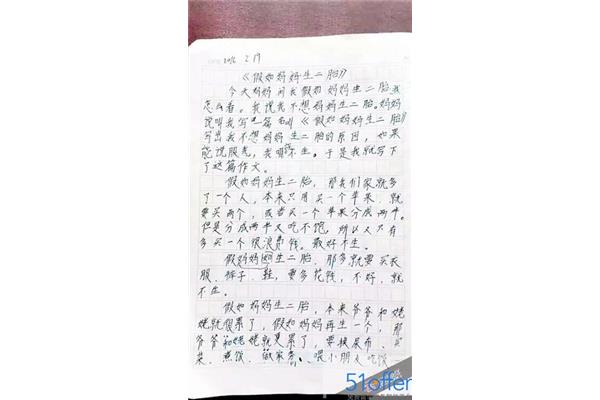 2016 2 19
《假如妈妈生二胎》
今天妈妈问我假如妈妈生二胎我
怎么看。我说我不想妈妈生二胎。妈妈
说叫我写一篇《假如妈妈生二胎》
写出我不想妈妈生二胎的原因，如果
能说服她，我就不生。于是我就写下
了这篇作文。
假如妈妈生二胎，那我们家就多
了一个人，本来只用买一个苹果，就
要买两个，或者买一个苹果分成两半。
但是分成两半又吃不饱，所以又只有
多买一个很浪费钱。最好不生。
假妈妈生二胎，那多就要买衣
服、裤子、鞋，要多花钱，不好，就
不生。
假如妈妈生二胎，本来爷爷和姥
姥就很累了，假如妈妈再生一个，那
爷爷和姥姥就更累了，要换尿布、买
菜、煮饭、做家务、喂小朋友吃饭
51offer